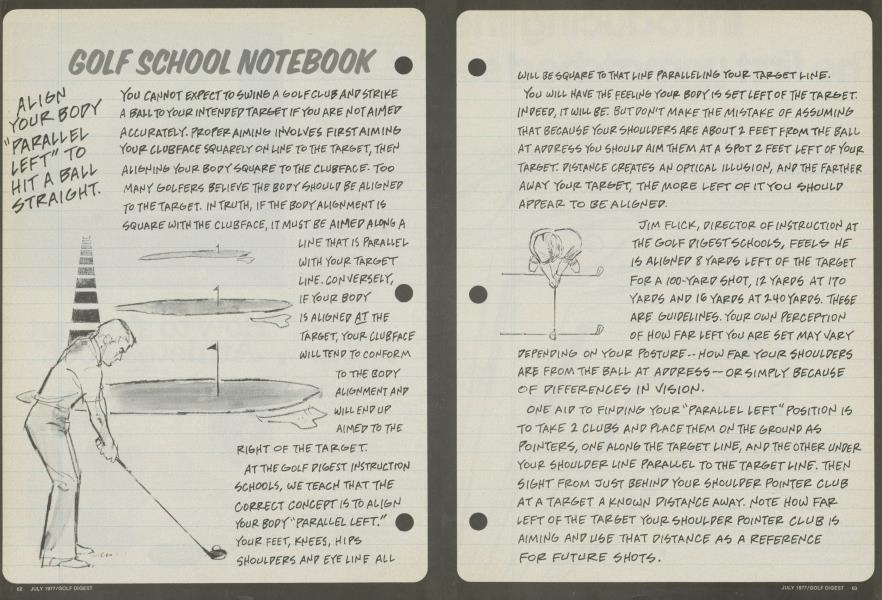 GOLF SCHOOL NOTEBOOK
ALIGN
YOUR BODY
"PARALLEL
LEFT" TO
HIT A BALL
STRAIGHT.
YOU CANNOT EXPECT TO SWING A GOLF CLUB AND STRIKE
A BALL TO YOUR INTENDED TARGET IF YOU ARE NOT AIMED
ACCURATELY. PROPER AIMING INVOLVES FIRST AIMING
YOUR CLUBFACE SQUARELY ON LINE TO THE TARGET, THEN
ALIGNING YOUR BODY SQUARE TO THE CLUBFACE. TOO
MANY GOLFERS BELIEVE THE BODY SHOULD BE ALIGNED
TO THE TARGET. IN TRUTH, IF THE BODY ALIGNMENT IS
SQUARE WITH THE CLUBFACE, IT MUST BE AIMED ALONG A
LINE THAT IS PARALLEL
WITH YOUR TARGET
LINE. CONVERSELY,
IF YOUR BODY
IS ALIGNED AT THE
TARGET, YOUR CLUBFACE
WILL TEND TO CONFORM
TO THE BODY
ALIGNMENT AND
WILL END UP
AIMED TO THE
RIGHT OF THE TARGET.
AT THE GOLF DIGEST INSTRUCTION
SCHOOLS, WE TEACH THAT THE
CORRECT CONCEPT IS TO ALIGN
YOUR BODY "PARALLEL LEFT."
YOUR FEET, KNEES, HIPS
SHOULDERS AND EYE LINE ALL
62 JULY 1977/GOLF DIGEST
WILL BE SQUARE TO THAT LINE PARALLELING YOUR TARGET LINE.
YOU WILL HAVE THE FEELING YOUR BODY IS SET LEFT OF THE TARGET.
INDEED, IT WILL BE. BUT DON'T MAKE THE MISTAKE OF ASSUMING
THAT BECAUSE YOUR SHOULDERS ARE ABOUT 2 FEET FROM THE BALL
AT ADDRESS YOU SHOULD AIM THEM AT A SPOT 2 FEET LEFT OF YOUR
TARGET. DISTANCE CREATES AN OPTICAL ILLUSION, AND THE FARTHER
AWAY YOUR TARGET, THE MORE LEFT OF IT YOU SHOULD
APPEAR TO BE ALIGNED.
JIM FLICK, DIRECTOR OF INSTRUCTION AT
THE GOLF DIGEST SCHOOLS, FEELS HE
IS ALIGNED 8 YARDS LEFT OF THE TARGET
FOR A 100-YARD SHOT, 12 YARDS AT 170
YARDS AND 16 YARDS AT 240 YARDS. THESE
ARE GUIDELINES. YOUR OWN PERCEPTION
OF HOW FAR LEFT YOU ARE SET MAY VARY
DEPENDING ON YOUR POSTURE--HOW FAR YOUR SHOULDERS
ARE FROM THE BALL AT ADDRESS--OR SIMPLY BECAUSE
OF DIFFERENCES IN VISION.
ONE AID TO FINDING YOUR "PARALLEL LEFT" POSITION IS
TO TAKE 2 CLUBS AND PLACE THEM ON THE GROUND AS
POINTERS, ONE ALONG THE TARGET LINE, AND THE OTHER UNDER
YOUR SHOULDER LINE PARALLEL TO THE TARGET LINE. THEN
SIGHT FROM JUST BEHIND YOUR SHOULDER POINTER CLUB
AT A TARGET A KNOWN DISTANCE AWAY. NOTE HOW FAR
LEFT OF THE TARGET YOUR SHOULDER POINTER CLUB IS
AIMING AND USE THAT DISTANCE AS A REFERENCE
FOR FUTURE SHOTS.
JULY 1977/GOLF DIGEST 63